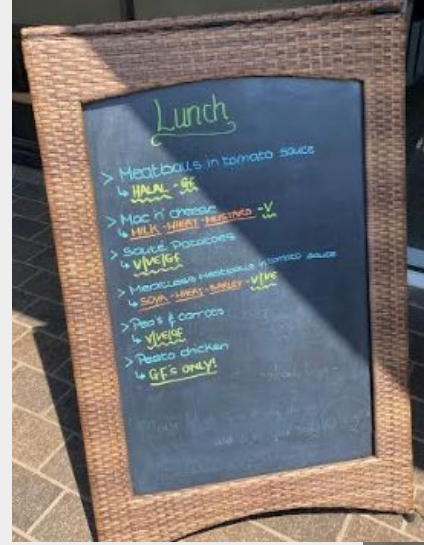 Lunch
> Meatballs in tomato sauce
↳ HALAL - GF
> Mac n' cheese
↳ MILK - WHEAT - MUSTARD - V
> Sauté Potatoes
↳ V/VE/GF
> Meatless Meatballs in tomato sauce
↳ SOYA - WHEAT - BARLEY - V/VE
> Pea's & carrots
↳ V/VE/GF
> Pesto chicken
↳ GF'S ONLY!